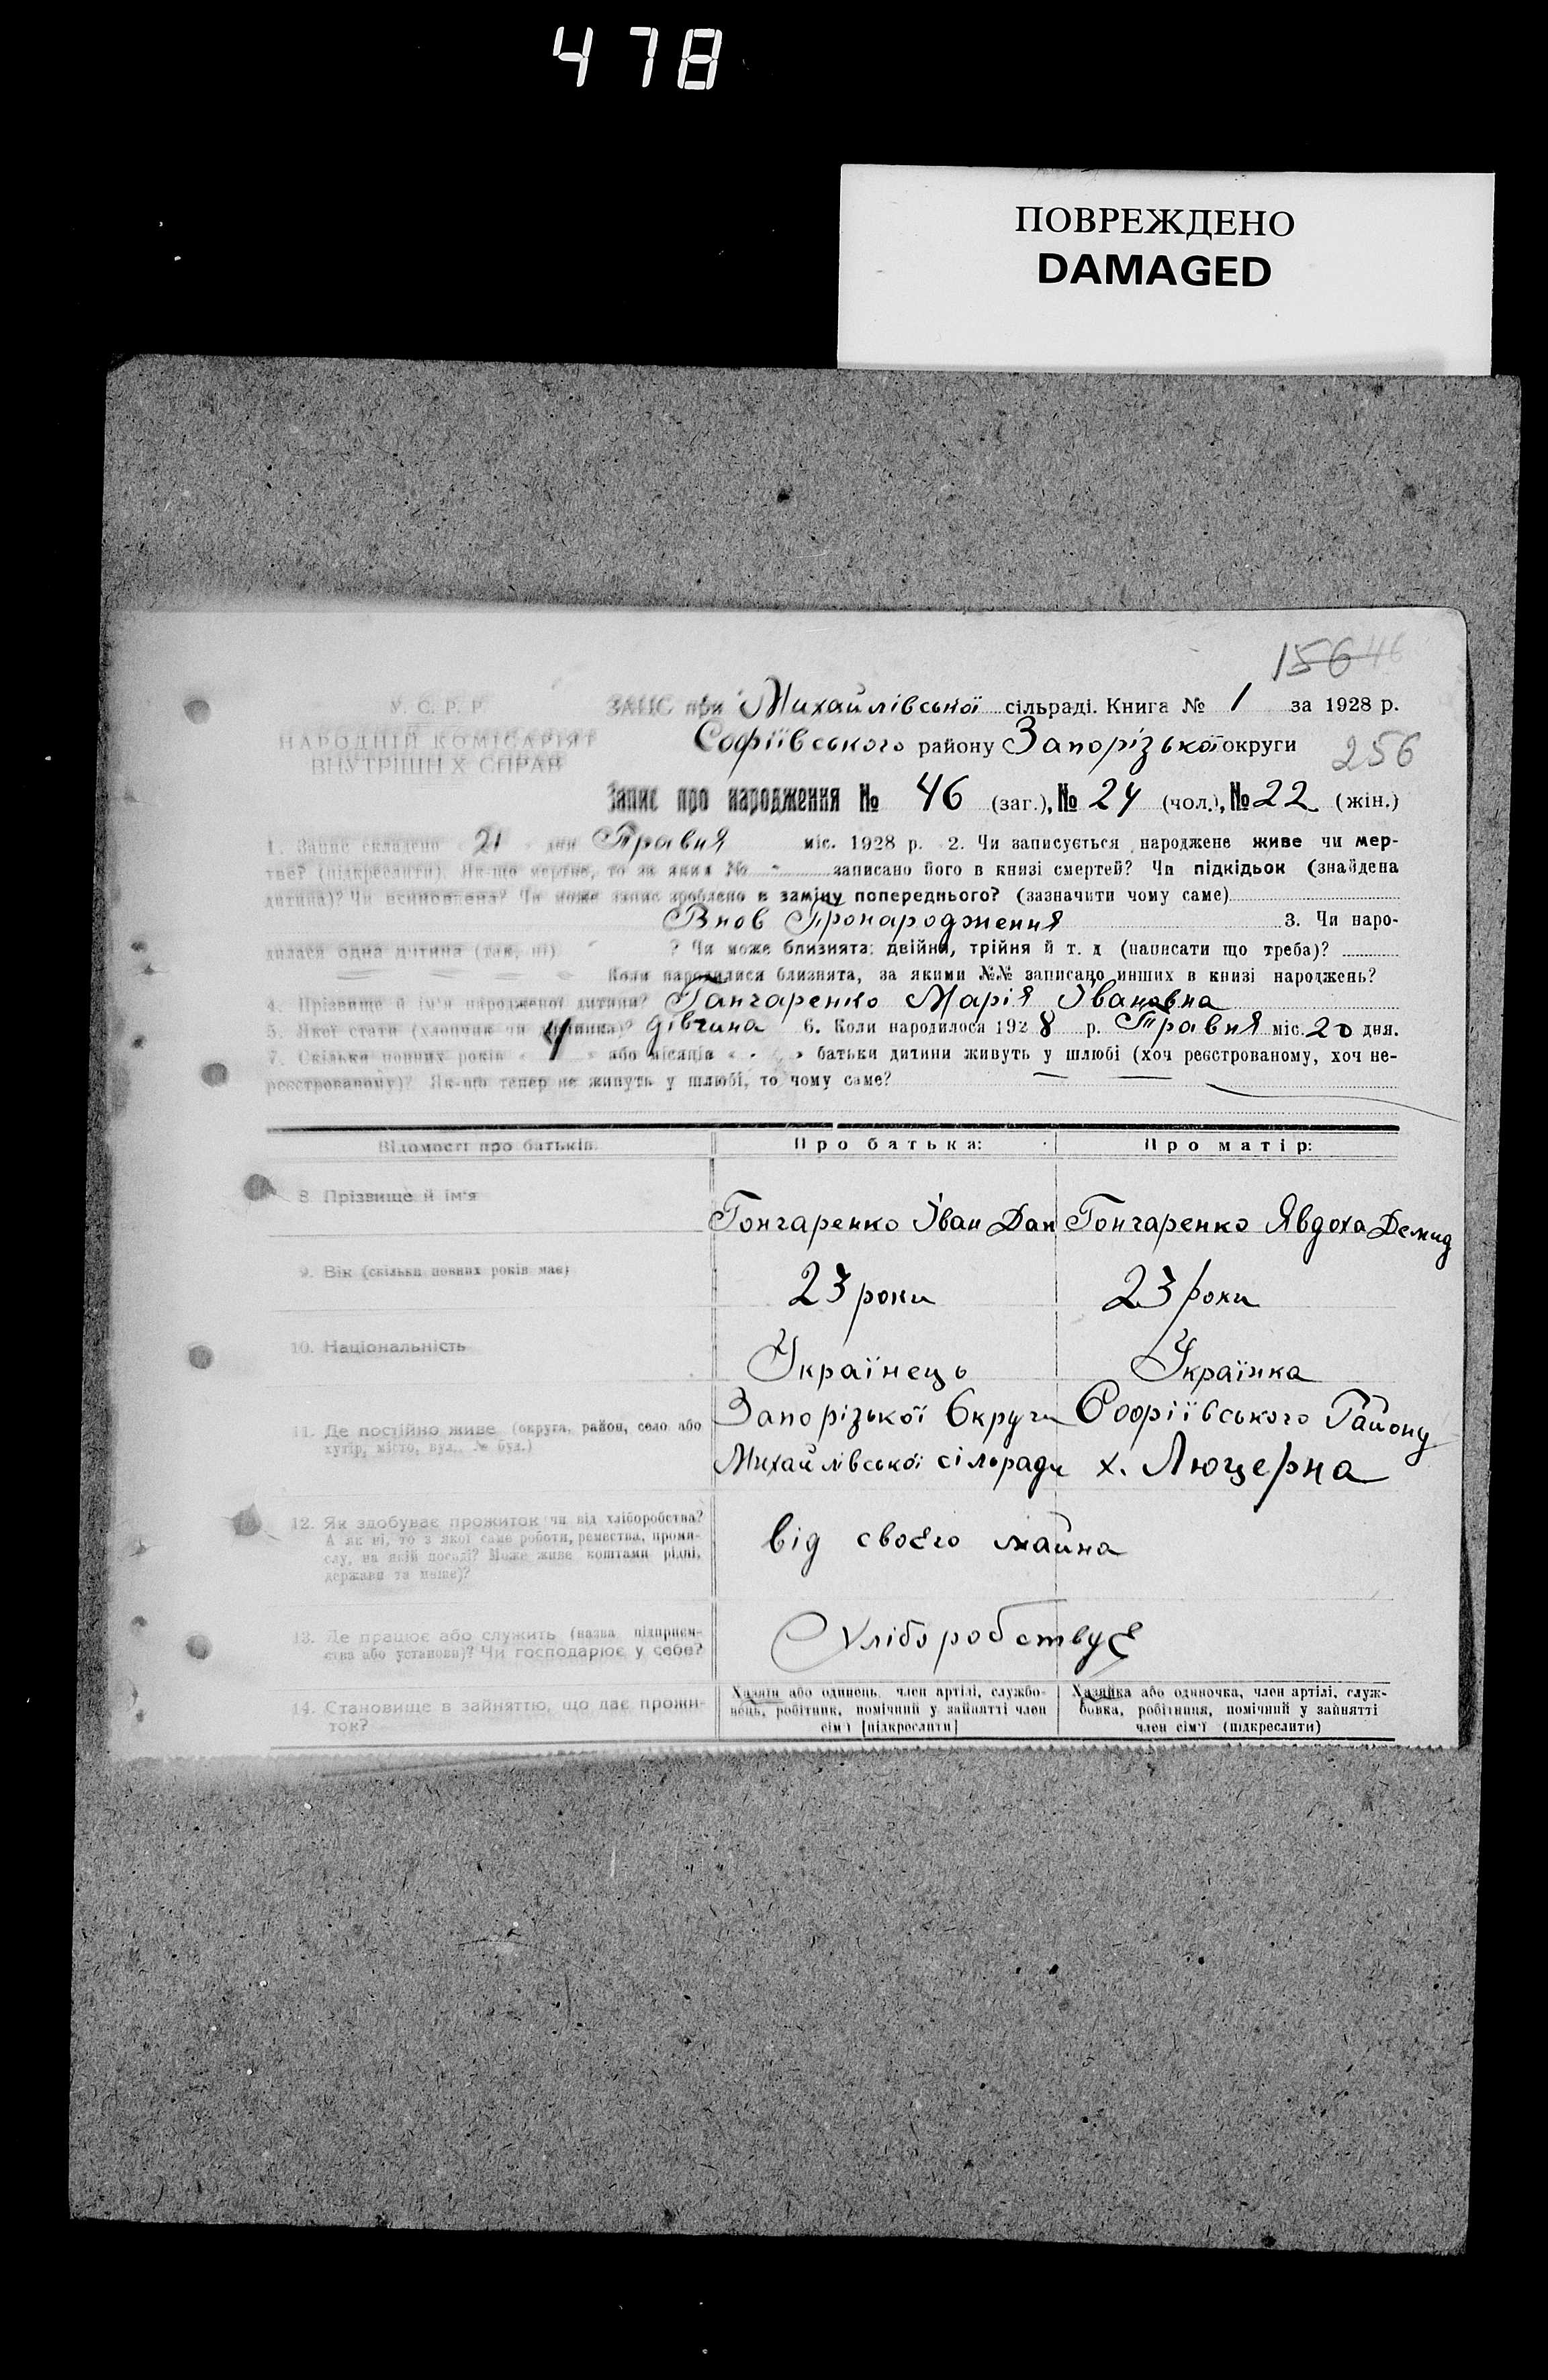 478
ПОВРЕЖДЕНО
DAMAGED
156 46
У. С. Р. Р. ЗАПС при Михайлівської сільраді. Книга № 1 за 1928 р.
НАРОДНІЙ КОМІСАРІЯТ Софіївського району Запорізької округи
ВНУТРІШНІХ СПРАВ 256
Запис про народження № 46 (заг.), № 24 (чол.), № 22 (жін.)
1. Запис складено 21 дня Травня міс. 1928 р. 2. Чи записується народжене живе чи мер-
тве? (підкреслити). Як-що мертве, то за яким № - записано його в книзі смертей? Чи підкідьок (знайдена
дитина)? Чи всиновлена? Чи може запис зроблено в заміну попереднього? (зазначити чому саме)
Внов Пронародження 3. Чи наро-
дилася одна дитина (так, ні) ? Чи може близнята: двійня, трійня й т. д (написати що треба)?
Коли народилися близнята, за якими №№ записано инших в книзі народжень?
4. Прізвище й ім'я народженої дитини? Ганчаренко Марія Івановна
5. Якої стати (хлопчик чи дівчинка)? дівчина 6. Коли народилося 1928 р. Травня міс. 20 дня.
7. Скільки повних років « 4 » або місяців « - » батьки дитини живуть у шлюбі (хоч реєстрованому, хоч не-
реєстрованому)? Як-що тепер не живуть у шлюбі, то чому саме?
Відомості про батьків. Про батька: Про матір:
8. Прізвище й ім'я Гончаренко Іван Дан Гончаренко Явдоха Демид
9. Вік (скільки повних років має) 23 роки 23 роки
10. Національність Українець Українка
11. Де постійно живе (округа, район, село або Запорізької Округи Софіївського Району
хутір, місто, вул., № буд.) Михайлівської сільради х. Люцерна
12. Як здобуває прожиток чи від хліборобства?
А як ні, то з якої саме роботи, ремества, проми- від своєго майна
слу, на якій посаді? Може живе коштами рідні,
держави та инше)?
13. Де працює або служить (назва підприєм- Хліборобствує
ства або установи)? Чи господарює у себе?
14. Становище в зайняттю, що дає прожи- Хазяїн або одинець, член артілі, службо- Хазяйка або одиночка, член артілі, служ-
ток? вець, робітник, помічний у зайнятті член бовка, робітниця, помічний у зайнятті
сім'ї [підкреслити] член сім'ї (підкреслити)